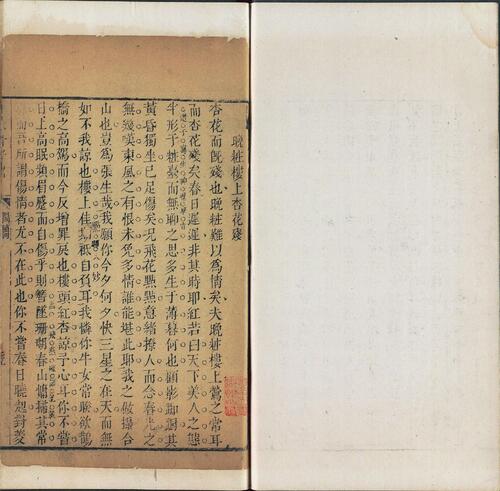 晚粧樓上杏花殘
杏花而既殘也晚粧難以爲情矣夫晚粧樓上鶯之常耳
而杏花殘矣春日遲遲非其時耶紅若曰天下美人之態
半形于粧臺而無聊之思多生于薄暮何也顧影
黃昏獨坐已足傷矣况飛花點點意緒撩人而念春光之
無幾嘆東風之有恨未免多情誰能堪此耶我之做撮合
山也豈爲張生哉我願你今夕何夕快三星之在天而無
如不我諒也樓上佳期秪自負耳我憐你牛女常睽欲鵲
橋之高駕而今反增罪戾也樓頭紅杏諒予心耳你不嘗
日上高眠頻眉蹙而自傷乎則簪墜珊瑚春山慵掃其常
而吾所謂傷情者尤不在此也你不嘗春日曉起對菱